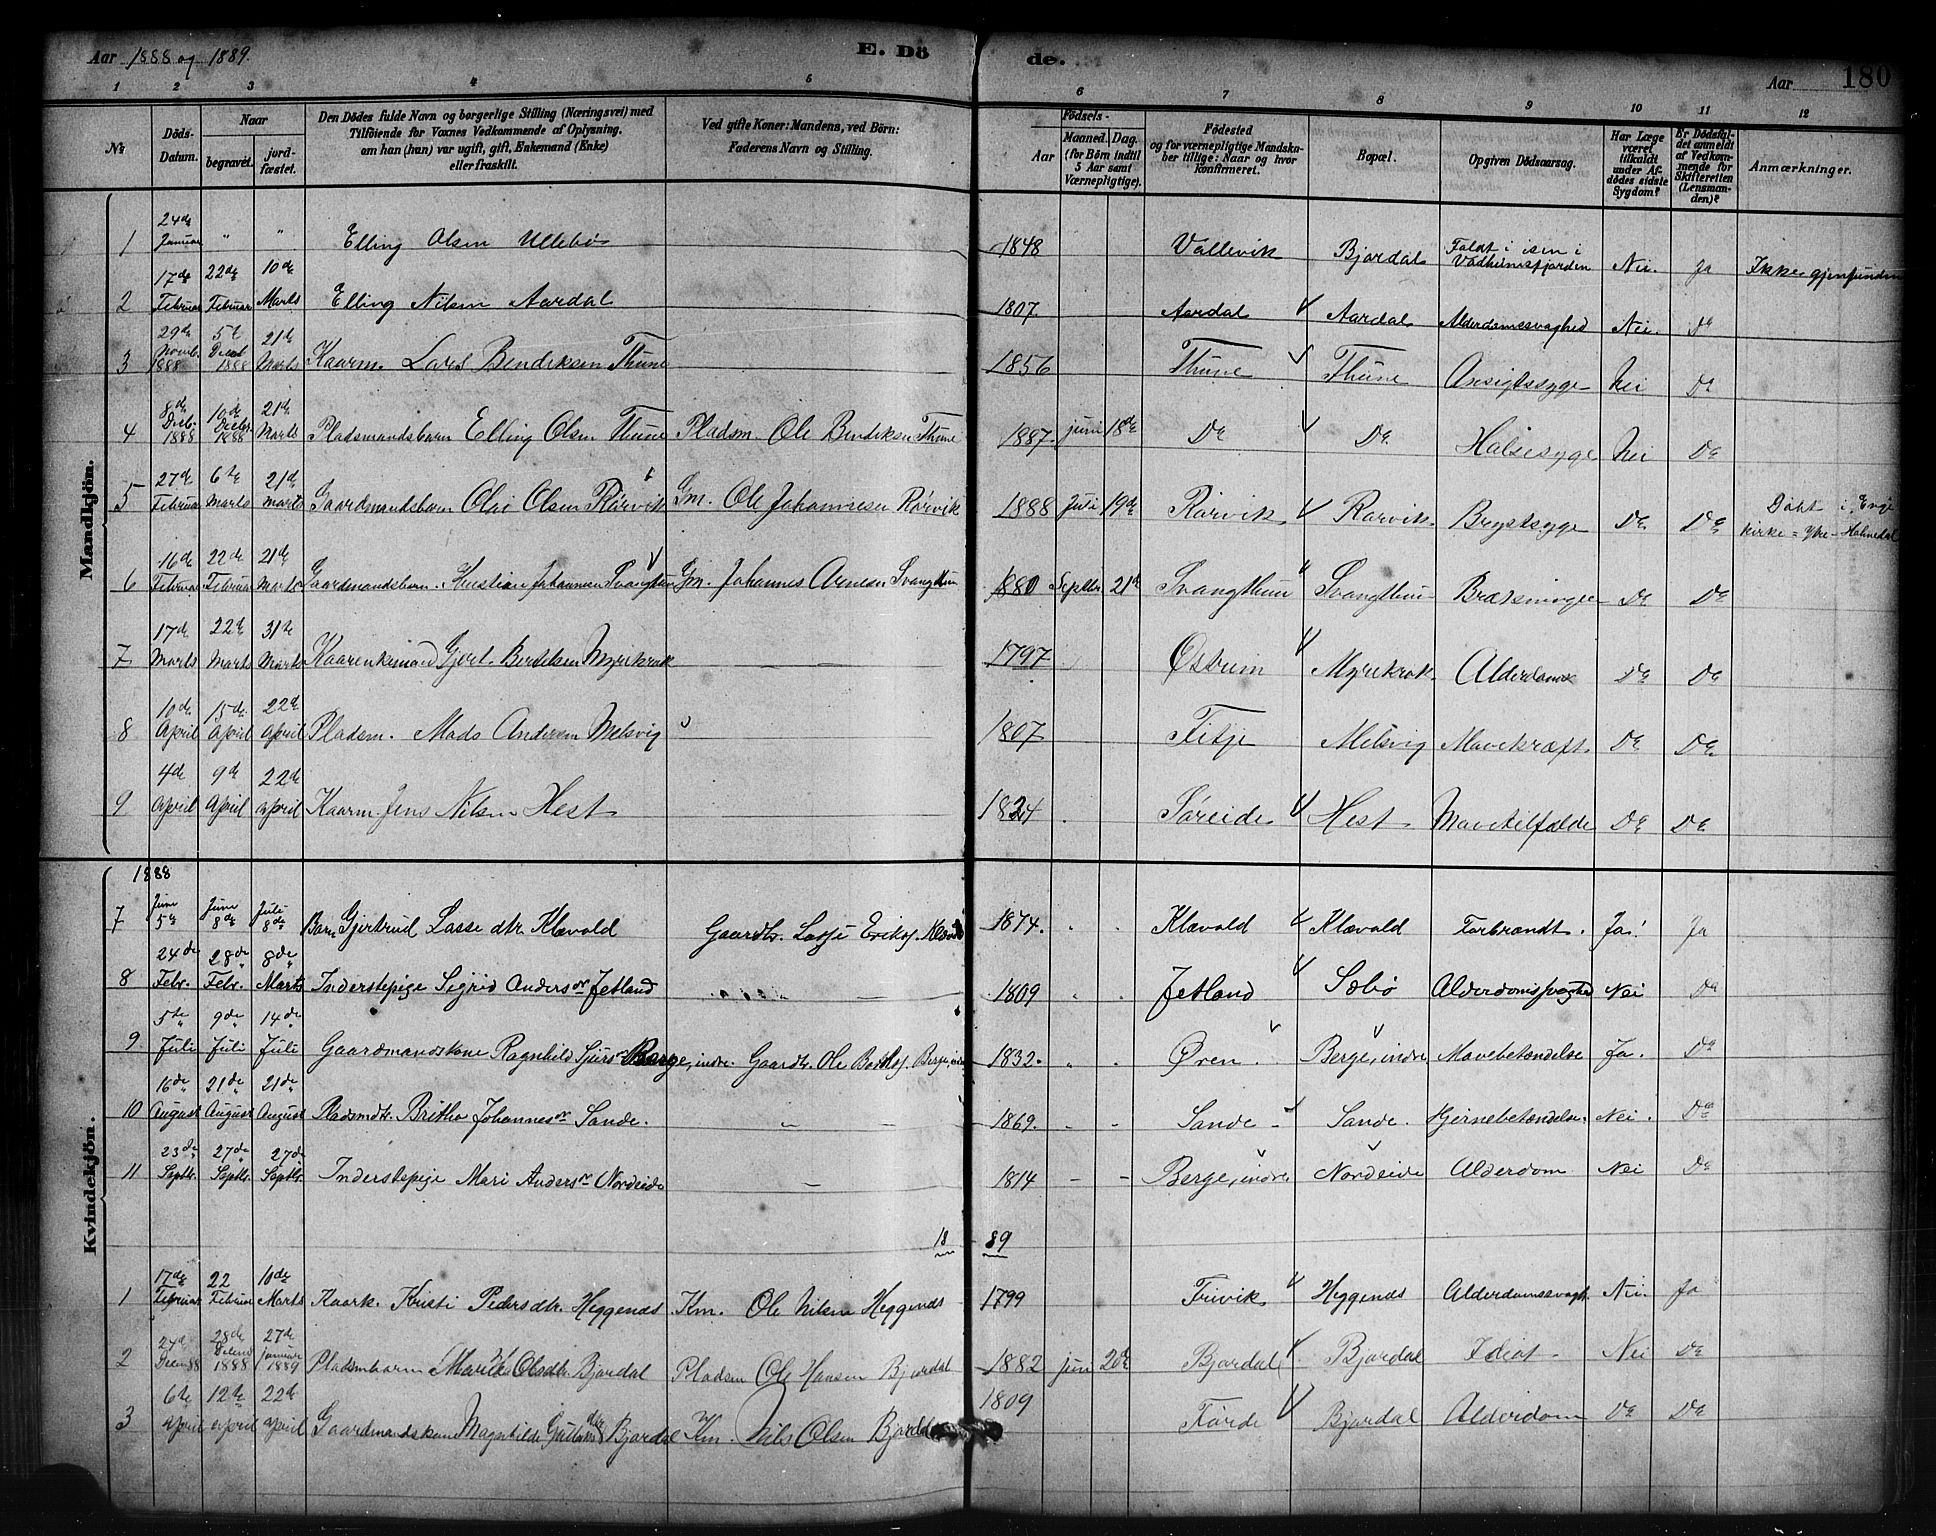 Aar 1888 og 1889. E. Dö de. Aar 180
1 2 3 4 5 6 7 8 9 10 11 12
No
Döds-Datum.
Naar
begravet.
jord-fæstet.
Den Dödes fulde Navn og borgerlige Stilling (Næringsvei) med
Tilföiende for Voxnes Vedkommende af Oplysning,
om han (hun) var ugift, gift, Enkemand (Enke)
eller fraskilt.
Ved gifte Koner: Mandens, ved Börn:
Faderens Navn og Stilling.
Födsels-
Aar
Maaned (for Börn indtil 5 Aar samt Værnepligtige).
Dag.
Födested
og for værnepligtige Mandska-
ber tillige: Naar og hvor
konfirmeret.
Bopæl.
Opgiven Dödsaarsag.
Har Læge været tilkaldt under Afdödes sidste Sygdom?
Er Dödsfaldet anmeldt af Vedkommende for Skifteretten (Lensmanden)?
Anmærkninger.
Mandkjön.
1 24de Januar " " Elling Olsen Ullebø 1848 Vallevik Bjordal Faldt i isen i Vadheimsfjorden Nei. Ja Ikke gjenfunden
2 17de Februar 22de Februar 10de Marts Elling Nilsen Aardal 1807. Aardal Aardal Alderdomssvaghed Nei. Do
3 29de Novb. 1888 5te Decb 1888 21de Marts Kaarm. Lars Bendiksen Thune 1856 Thune Thune Ansigtssyge Nei Do
4 8de Decb. 1888 10de Decbr 1888 21de Marts Pladsmandsbarn Elling Olsen Thune Pladsm. Ole Bendiksen Thune 1887 juni 18de Do Do Halssyge Nei Do
5 27de Februar 6te Marts 21de Marts Gaardmandsbarn Olai Olsen Rørvik Gm. Ole Johannesen Rørvik 1888 Juli 19de Rørvik Rørvik Brystsyge Do Do Døbt i kirke = Ytre-Holmedal
6 16de Februar 22de Februar 21de Marts Gaardmandsbarn Kristian Johannesen Svangthun Gm. Johannes Arnesen Svangthun 1880 Septbr. 21de Svangthun Svangthun Do Do
7 17de Marts 22de Marts 31te Marts Kaarenkemand Bertelsen Myrekrok 1797 Østrem Myrekrok Alderdom Do Do
8 10de April 15de April 22de April Pladsm. Mads Andersen Melsvig " 1807 Fitje Melsvig Mavekræft Do Do
9 4de April 9de April 22de April Kaarm. Jens Nilsen Hest 1824 Søreide Hest Mavetilfælde Do Do
Kvindekjön.
1888
7 Juni 5te Juni 8de Juli 8de Barn Gjertrud Lasse dtr. Klævold Gaardbr. Lasse Eriks. Klævold 1874. Klævold Klævold Forbrændt. Ja! Ja
8 24de Febr. 28de Febr. 8de Marts Inderstepige Sigrid Andersdr Jetland 1809 Jetland Sæbø Alderdomssvaghed Nei Do
9. 5te Juli 9de Juli 14de Juli Gaardmandskone Ragnhild Sjursdr Berge, indre. Gaardbr. Ole Berge, indre 1832. Øren. Berge, indre Mavebetændelse Ja. Do
10 16de August 21de August 21de August Pladsmdtr. Britha Johannesdr Sande. 1869. Sande Sande. Hjernebetændelse. Nei. Do
11 23de Septbr. 27de Septbr. 27de Septbr. Inderstepige Mari Andersdr Nordeide 1814 Berge, indre Nordeide Alderdom Nei Do
18 89
1 17de Februar 22 Februar 10de Marts Kaark. Kristi Pedersdtr. Heggenæs Km. Ole Nilsen Heggenæs 1799 Heggenæs Alderdomssvagh. Nei. Ja
2 27de 28de 1888 27de januar 1889 Pladsmbarn Olsdtr. Bjordal Pladsm Ole Hansen Bjordal 1882 juni 20de Bjordal Bjordal Idiot Nei Do
3 6te April 12te April 22de April Gaardmandskone Magnhilde Bjordal Km. Nils Olsen Bjordal 1809 Førde Bjordal Alderdom Do Do